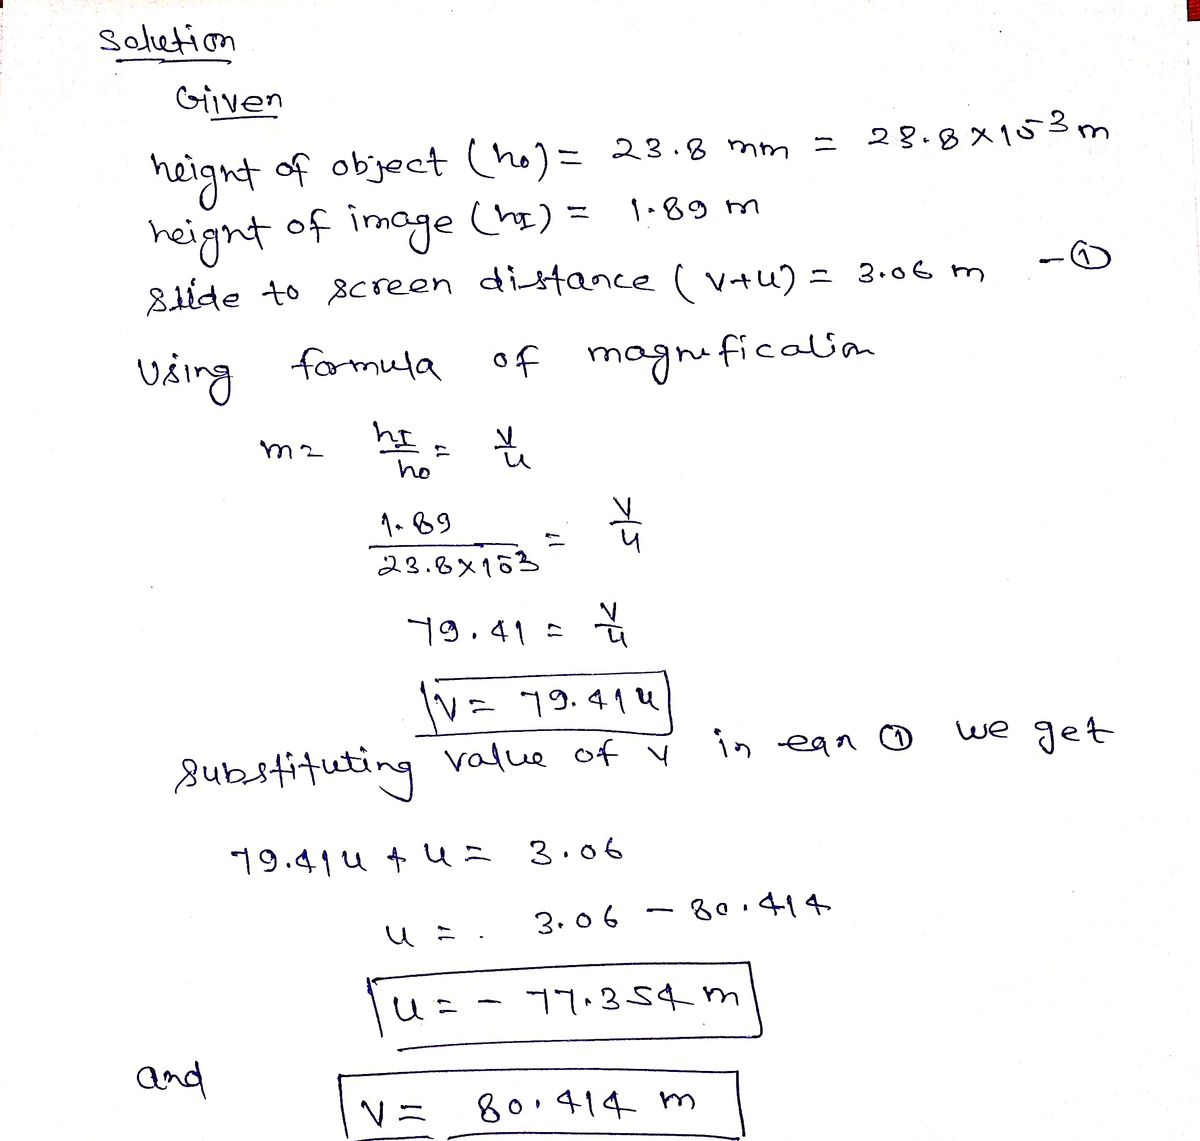 Solution
Given
height of object (ho) = 23.8 mm = 23.8 × 10⁻³ m
height of image (hI) = 1.89 m
slide to screen distance (v+u) = 3.06 m - ①
Using formula of magnification
m = hI/ho = v/u
1.89/23.8×10⁻³ = v/u
79.41 = v/u
v = 79.41u
substituting value of v in eqn ① we get
79.41u + u = 3.06
u = . 3.06 - 80.414
u = - 77.354 m
and
v = 80.414 m